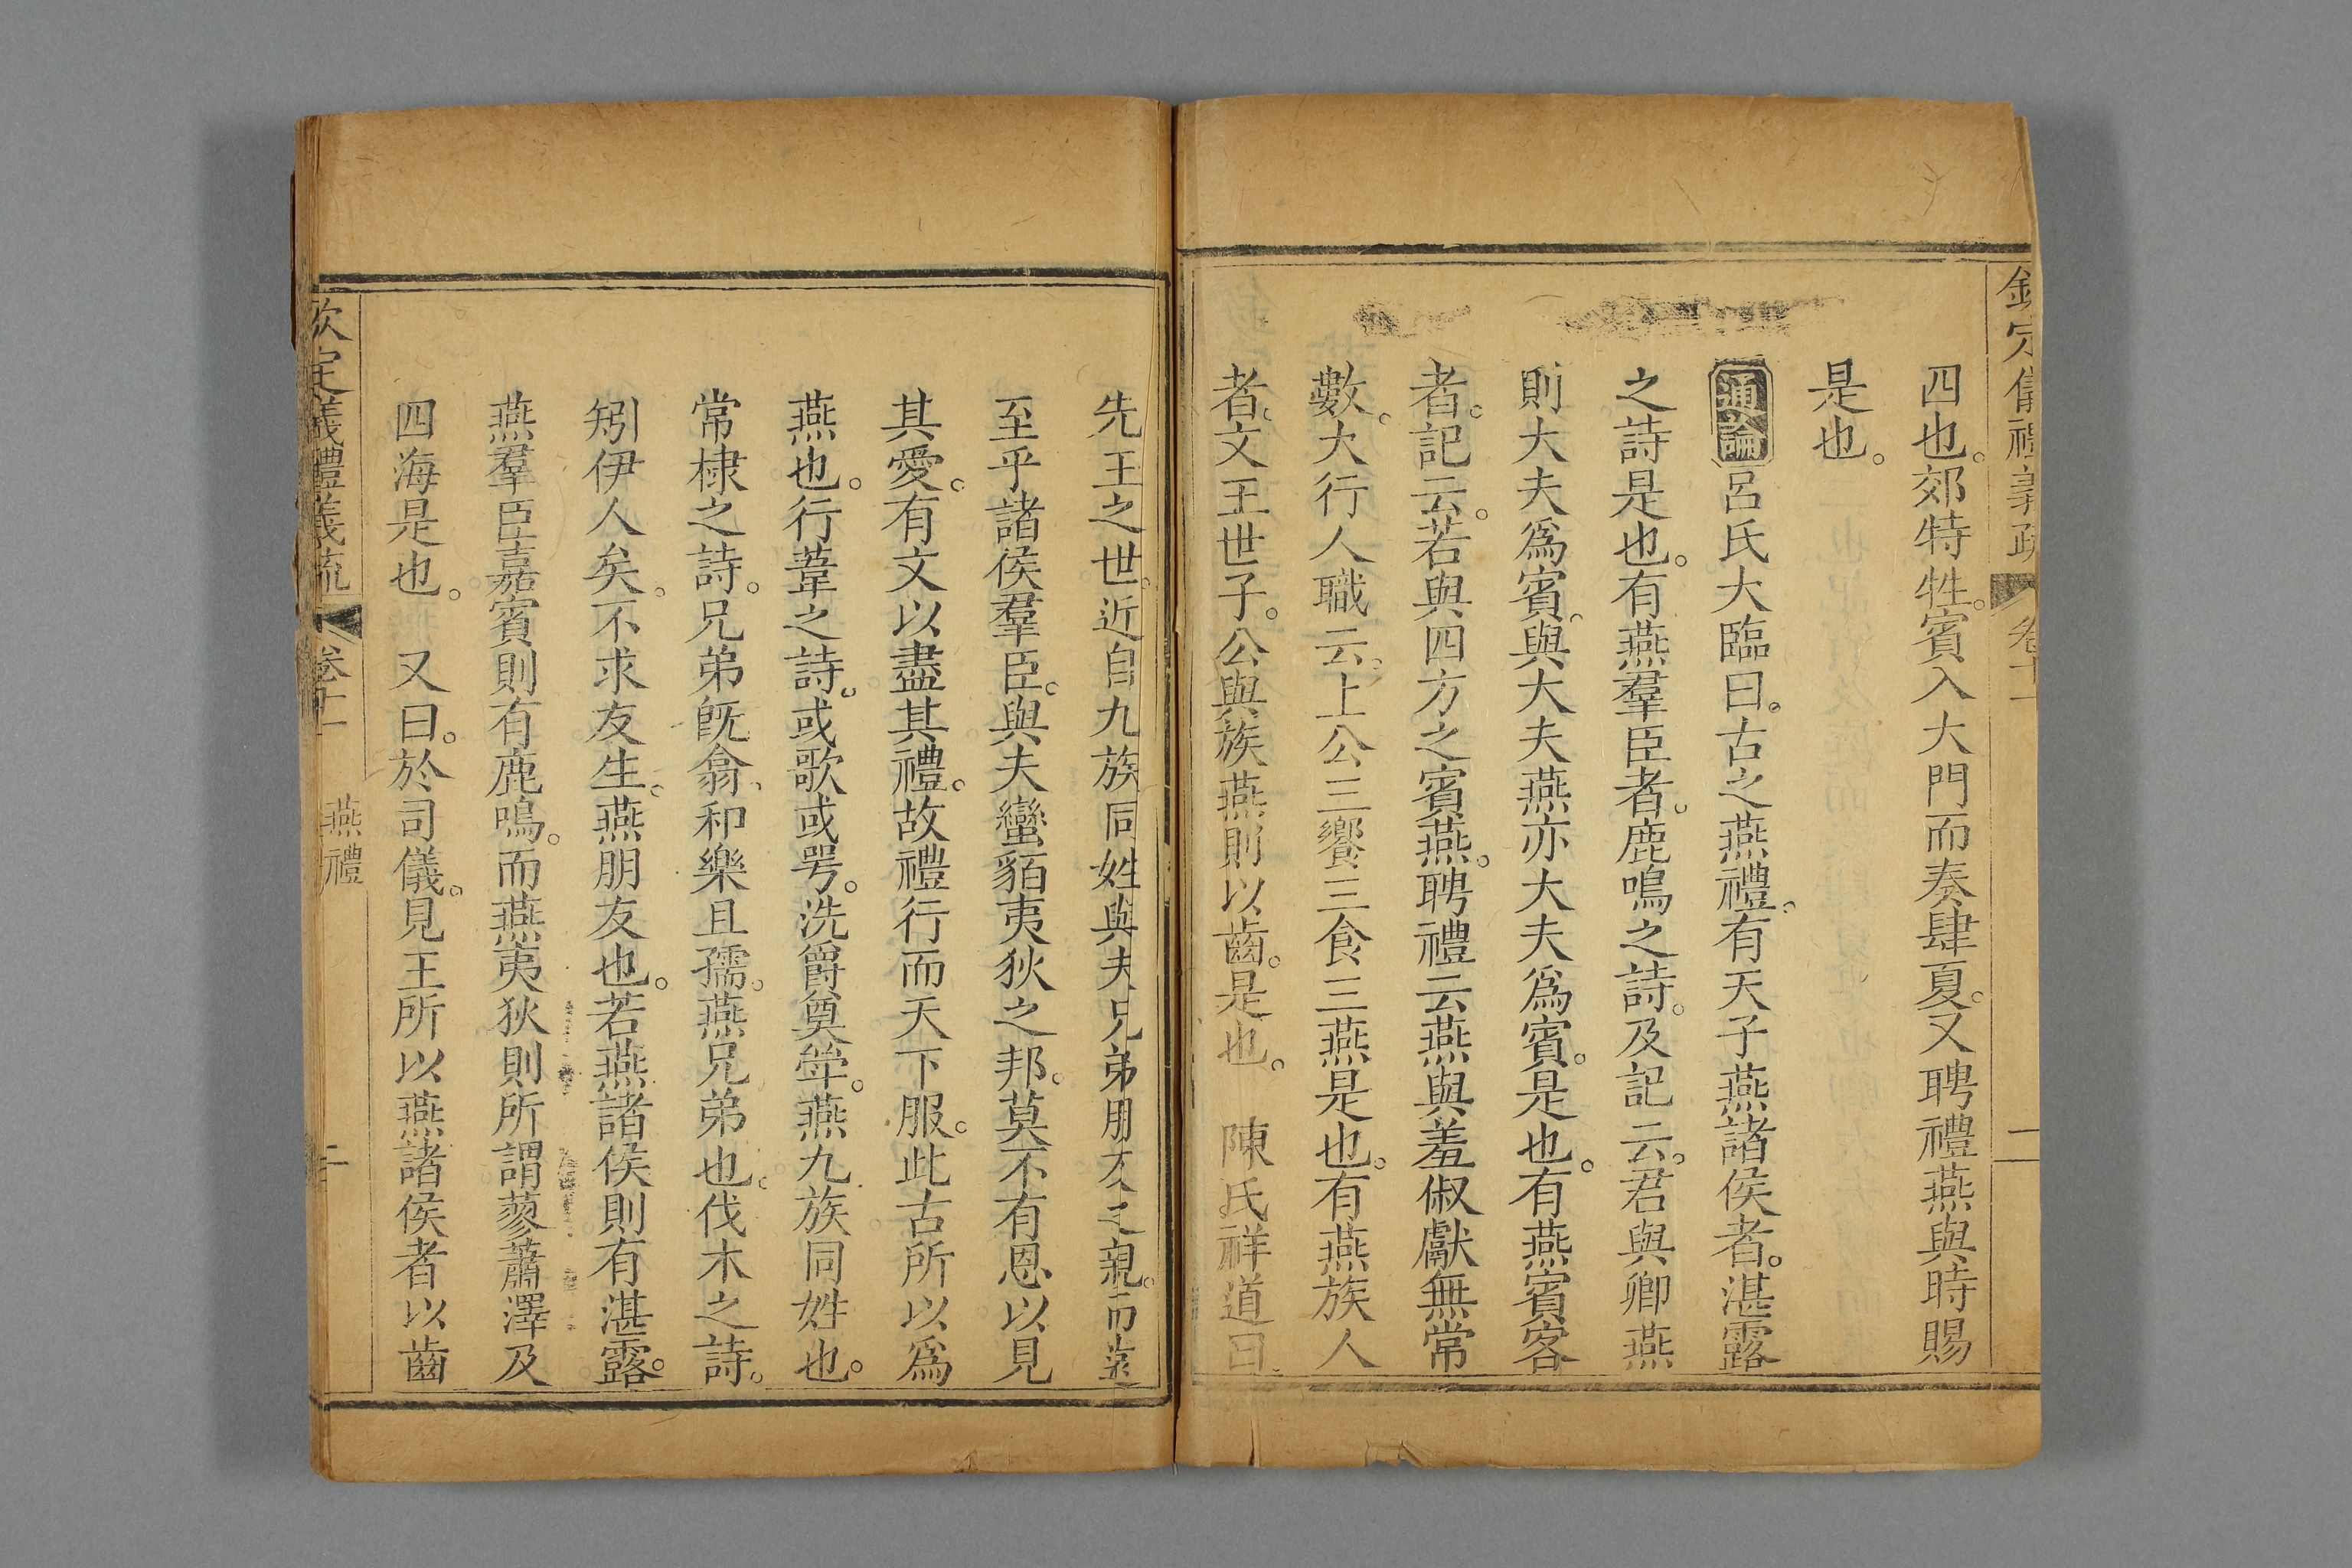 欽定儀禮義疏 卷十一 二
四也。郊特牲。賓入大門而奏肆夏。又聘禮燕與時賜
是也。
通論呂氏大臨曰。古之燕禮。有天子燕諸侯者。湛露
之詩是也。有燕羣臣者。鹿鳴之詩。及記云。君與卿燕
則大夫爲賓。與大夫燕亦大夫爲賓。是也。有燕賓客
者。記云。若與四方之賓燕。聘禮云燕與羞俶獻無常
數。大行人職云。上公三饗三食三燕是也。有燕族人
者。文王世子。公與族燕則以齒。是也。 陳氏祥道曰
先王之世。近自九族同姓與夫兄弟朋友之親。而遠
至乎諸侯羣臣。與夫蠻貊夷狄之邦。莫不有恩以見
其愛。有文以盡其禮。故禮行而天下服。此古所以爲
燕也。行葦之詩。或歌或咢。洗爵奠斝。燕九族同姓也。
常棣之詩。兄弟旣翕。和樂且孺。燕兄弟也。伐木之詩。
矧伊人矣。不求友生。燕朋友也。若燕諸侯則有湛露。
燕羣臣嘉賓則有鹿鳴。而燕夷狄則所謂蓼蕭澤及
四海是也。 又曰。於司儀。見王所以燕諸侯者以齒
欽定儀禮義疏 卷十一 燕禮 二